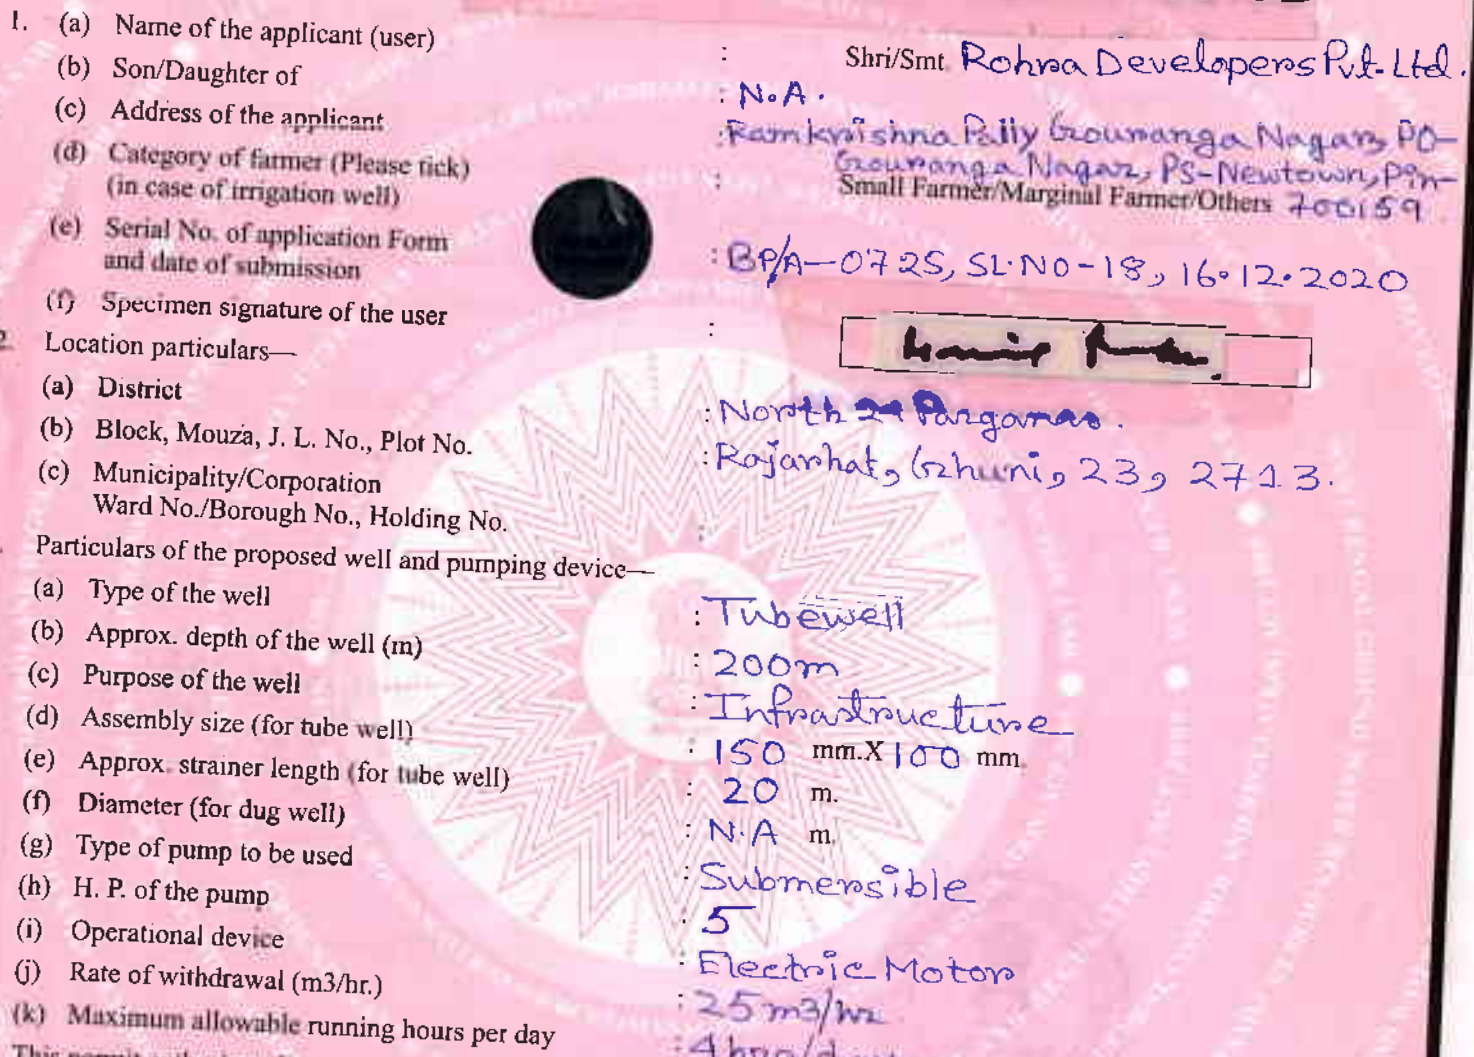 1. (a) Name of the applicant (user) : Shri/Smt. Rohra Developers Pvt. Ltd.
(b) Son/Daughter of : N.A.
(c) Address of the applicant : Ramkrishna Pally Gouranga Nagar, PO-
Gouranga Nagar, PS-Newtown, Pin-
(d) Category of farmer (Please tick) : Small Farmer/Marginal Farmer/Others 700159
(in case of irrigation well)
(e) Serial No. of application Form : BP/A-0725, SL.NO-18, 16.12.2020
and date of submission
(f) Specimen signature of the user :
2. Location particulars—
(a) District : North 24 Parganas.
(b) Block, Mouza, J. L. No., Plot No. : Rajarhat, Ghuni, 23, 2713.
(c) Municipality/Corporation
Ward No./Borough No., Holding No. :
Particulars of the proposed well and pumping device—
(a) Type of the well : Tubewell
(b) Approx. depth of the well (m) : 200m
(c) Purpose of the well : Infrastructure
(d) Assembly size (for tube well) : 150 mm.X 100 mm.
(e) Approx. strainer length (for tube well) : 20 m.
(f) Diameter (for dug well) : N.A m.
(g) Type of pump to be used : Submersible
(h) H. P. of the pump : 5
(i) Operational device : Electric Motor
(j) Rate of withdrawal (m3/hr.) : 25 m3/hr
(k) Maximum allowable running hours per day : 4 hrs/day
This permit